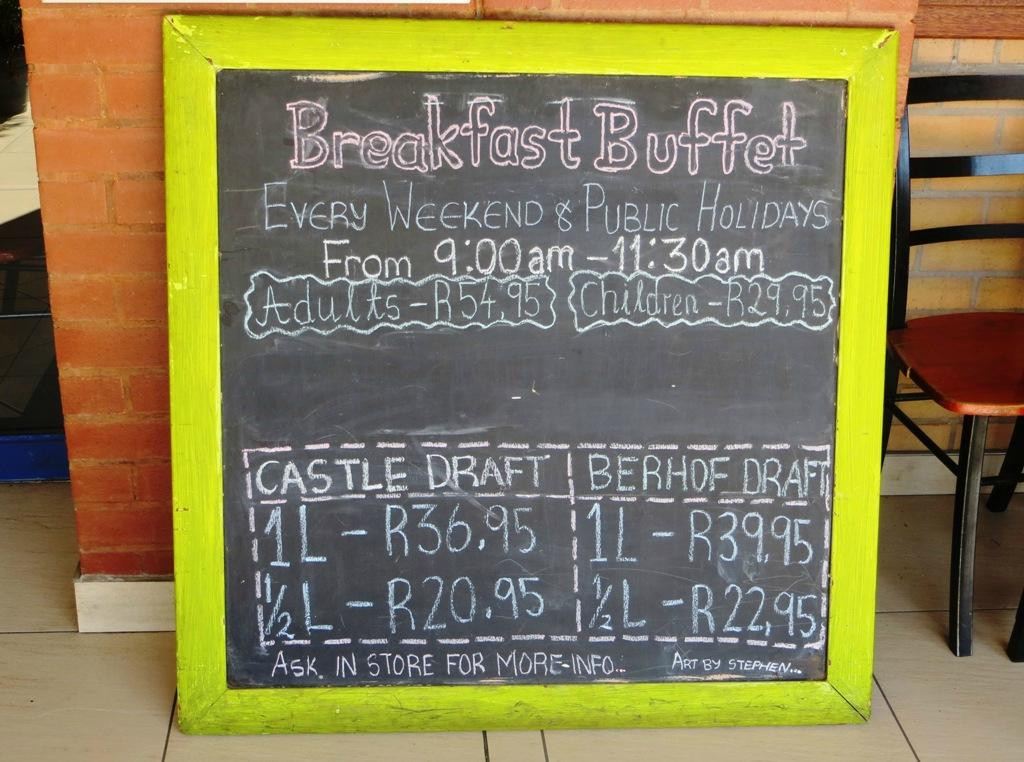 Breakfast Buffet
EVERY WEEKEND & PUBLIC HOLIDAYS
From 9:00am – 11:30am
Adults – R54,95 Children – R29,95
CASTLE DRAFT BERHOF DRAFT
1L – R36,95 1L – R39,95
½L – R20,95 ½L – R22,95
ASK IN STORE FOR MORE-INFO... ART BY STEPHEN...